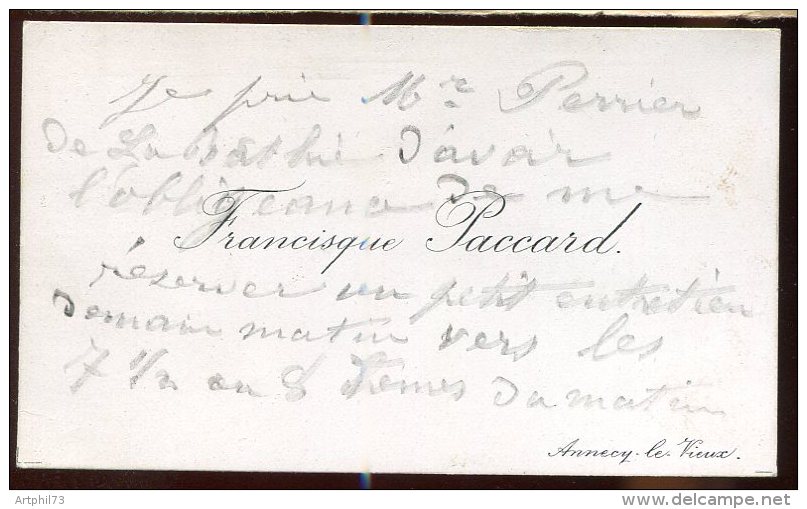 Je prie Mr Perrier
de La Bathie d'avoir
l'obligeance de me
Francisque Paccard.
réserver un petit entretien
demain matin vers les
7 1/2 ou 8 du matin
Annecy-le-Vieux.
Artphil73
www.delcampe.net